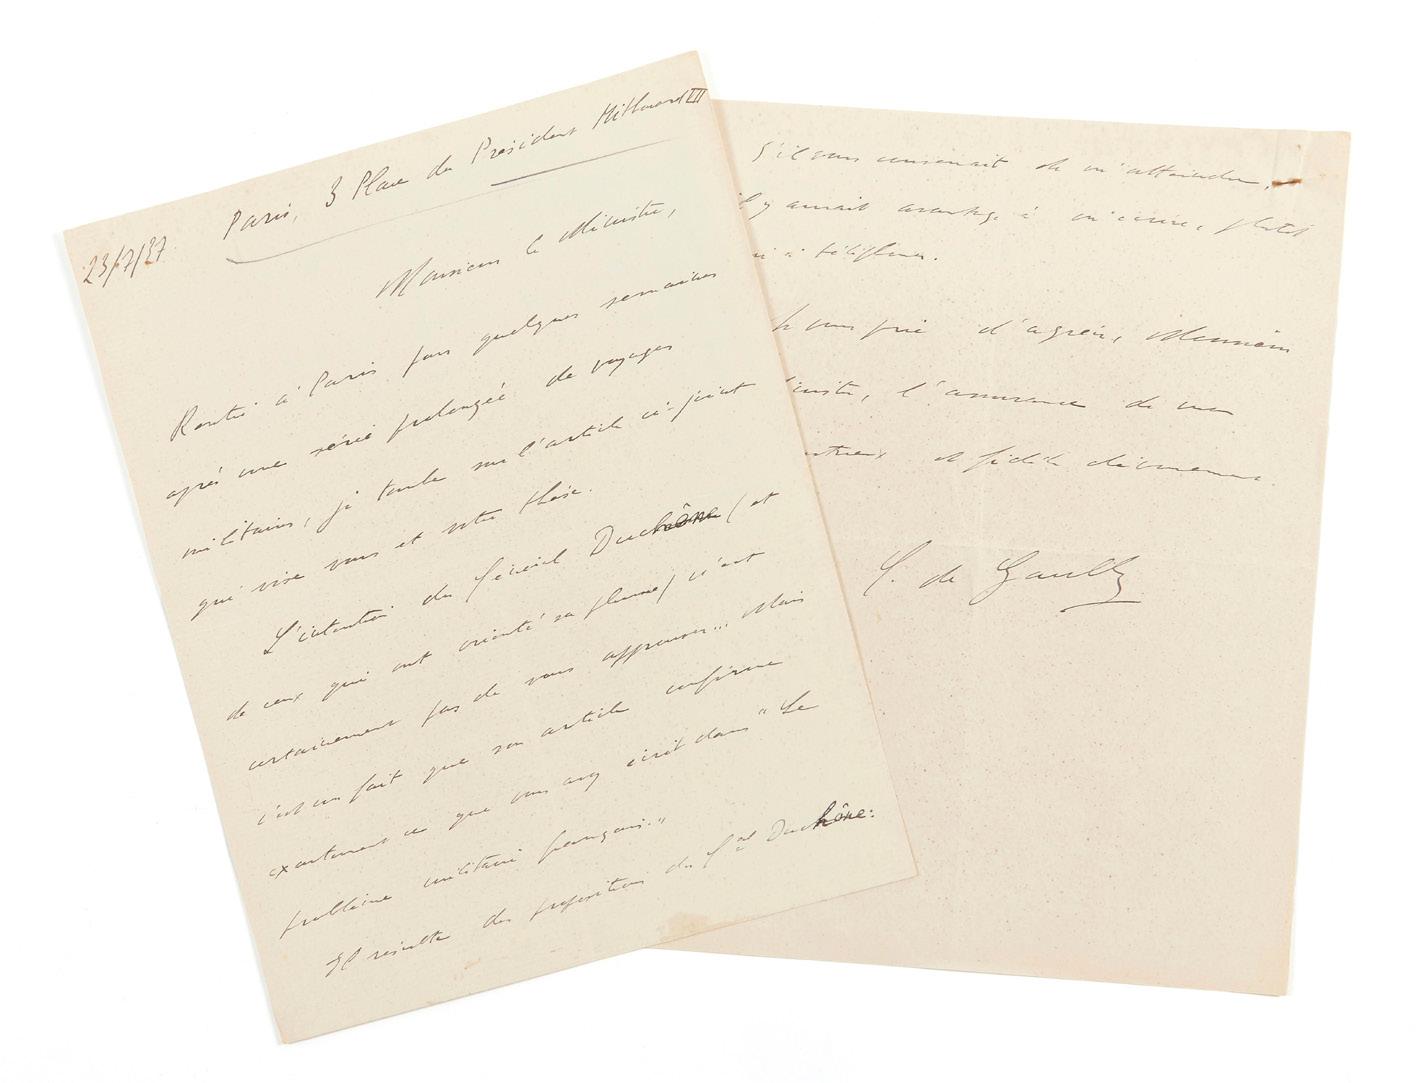 23/7/37
Paris, 3 Place du Président Mithouard VII
Monsieur le Ministre,
Rentré à Paris pour quelques semaines
après une série prolongée de voyages
militaires, je tombe sur l'article ci-joint
qui vise vous et votre thèse.
L'intention du Général Duchêne (et
de ceux qui ont orienté sa plume) n'est
certainement pas de vous approuver... Mais
c'est un fait que son article confirme
exactement ce que vous avez écrit dans "Le
problème militaire français."
Il résulte des propositions du Gal Duchêne:
S'il vous convenait de m'atteindre,
il y aurait avantage à m'écrire, plutôt
à téléphoner.
vous prie d'agréer, Monsieur
l'assurance de mon
et fidèle dévouement.
C. de Gaulle